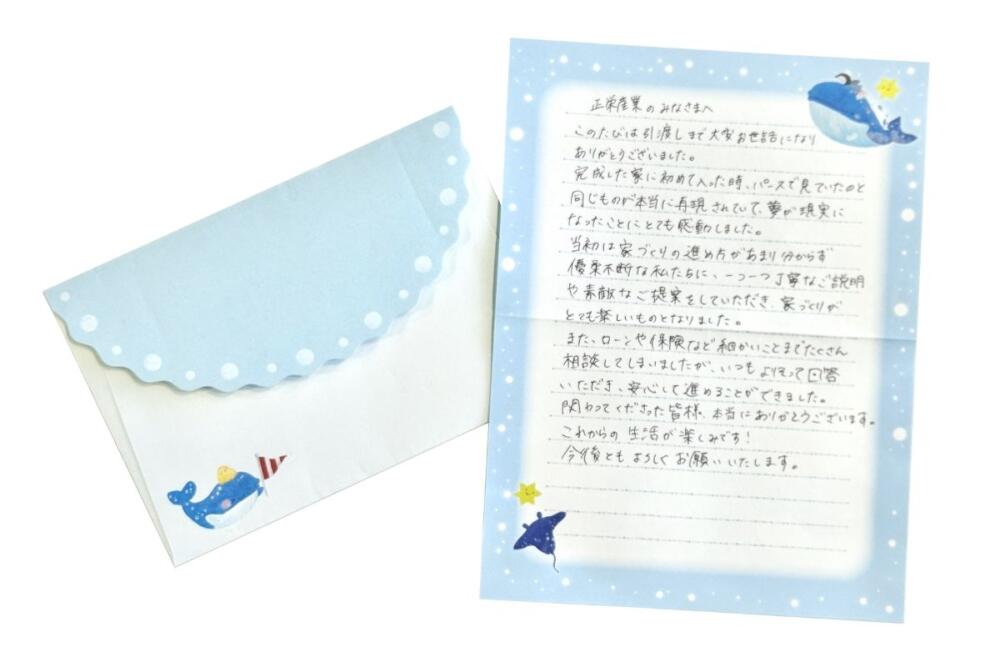 正栄産業のみなさまへ
このたびは引渡しまで大変お世話になり
ありがとうございました。
完成した家に初めて入った時、パースで見ていたのと
同じものが本当に再現されていて、夢が現実に
なったことにとても感動しました。
当初は家づくりの進め方があまり分からず
優柔不断な私たちに、一つ一つ丁寧なご説明
や素敵なご提案をしていただき、家づくりが
とても楽しいものとなりました。
また、ローンや保険など細かいことまでたくさん
相談してしまいましたが、いつも 回答
いただき、安心して進めることができました。
関わってくださった皆様、本当にありがとうございます。
これからの生活が楽しみです!
今後ともよろしくお願いいたします。